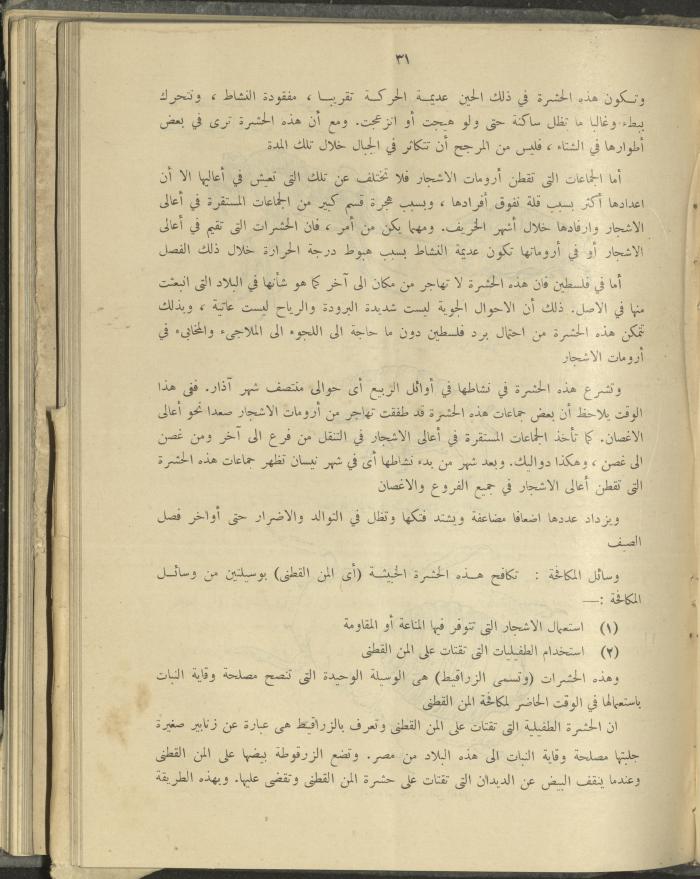 ٣١
وتكون هذه الحشرة في ذلك الحين عديمة الحركة تقريبا ، مفقودة النشاط ، وتتحرك
ببطء وغالبا ما تظل ساكنة حتى ولو هيجت أو انزعجت. ومع أن هذه الحشرة ترى في بعض
أطوارها في الشتاء ، فليس من المرجح أن تتكاثر في الجبال خلال تلك المدة
أما الجماعات التى تقطن أرومات الاشجار فلا تختلف عن تلك التى تعيش في أعاليها الا أن
اعدادها أكثر بسبب قلة نفوق أفرادها ، وبسبب هجرة قسم كبير من الجماعات المستقرة في أعالى
الاشجار وارفادها خلال أشهر الخريف. ومهما يكن من أمر ، فان الحشرات التى تقيم في أعالى
الاشجار أو في أروماتها تكون عديمة النشاط بسبب هبوط درجة الحرارة خلال ذلك الفصل
أما في فلسطين فان هذه الحشرة لا تهاجر من مكان الى آخر كما هو شأنها في البلاد التى انبعثت
منها في الاصل. ذلك أن الاحوال الجوية ليست شديدة البرودة والرياح ليست عاتية ، وبذلك
تتمكن هذه الحشرة من احتمال برد فلسطين دون ما حاجة الى اللجوء الى الملاجىء والمخابىء في
أرومات الاشجار
وتشرع هذه الحشرة في نشاطها في أوائل الربيع أى حوالى منتصف شهر آذار. ففى هذا
الوقت يلاحظ أن بعض جماعات هذه الحشرة قد طفقت تهاجر من أرومات الاشجار صعدا نحو أعالى
الاغصان. كما تأخذ الجماعات المستقرة في أعالى الاشجار في التنقل من فرع الى آخر ومن غصن
الى غصن ، وهكذا دواليك. وبعد شهر من بدء نشاطها أى في شهر نيسان تظهر جماعات هذه الحشرة
التى تقطن أعالى الاشجار في جميع الفروع والاغصان
ويزداد عددها اضعافا مضاعفة ويشتد فتكها وتظل في التوالد والاضرار حتى أواخر فصل
الصيف
وسائل المكافحة : تكافح هذه الحشرة الخبيثة (أى المن القطنى) بوسيلتين من وسائل
المكافحة :—
(١) استعمال الاشجار التى تتوفر فيها المناعة أو المقاومة
(٢) استخدام الطفيليات التى تقتات على المن القطنى
وهذه الحشرات (وتسمى الزراقيط) هى الوسيلة الوحيدة التى تنصح مصلحة وقاية النبات
باستعمالها في الوقت الحاضر لمكافحة المن القطنى
ان الحشرة الطفيلية التى تقتات على المن القطنى وتعرف بالزراقيط هى عبارة عن زنابير صغيرة
جلبتها مصلحة وقاية النبات الى هذه البلاد من مصر. وتضع الزرقوطة بيضها على المن القطنى
وعندما ينقف البيض عن الديدان التى تقتات على حشرة المن القطنى وتقضى عليها. وبهذه الطريقة